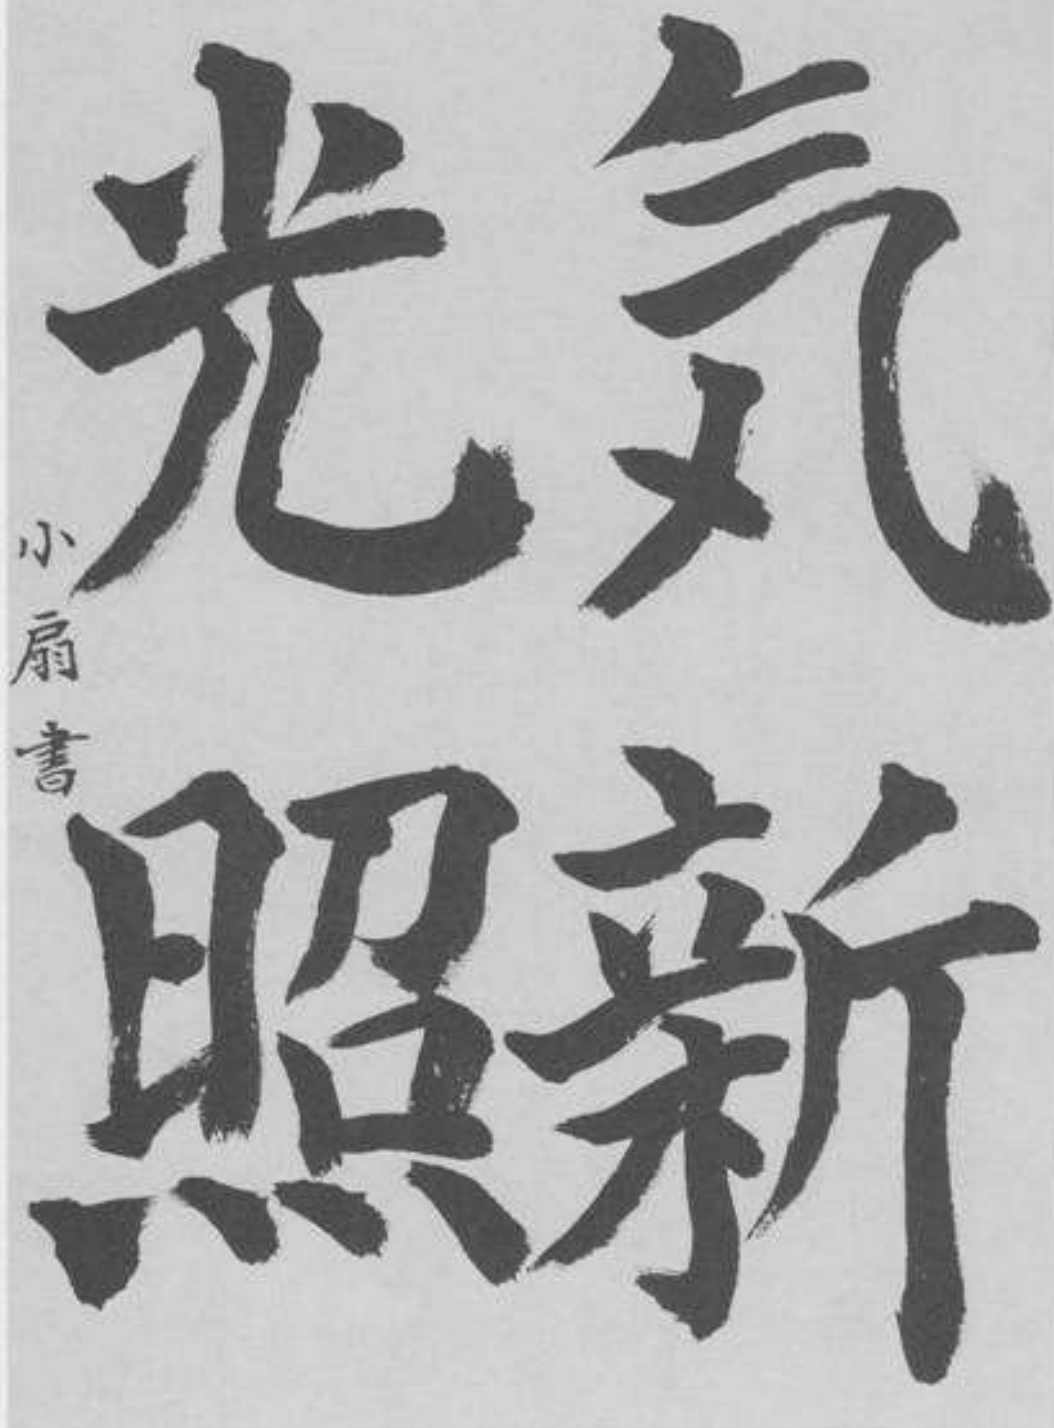 気新
光照
小扇書